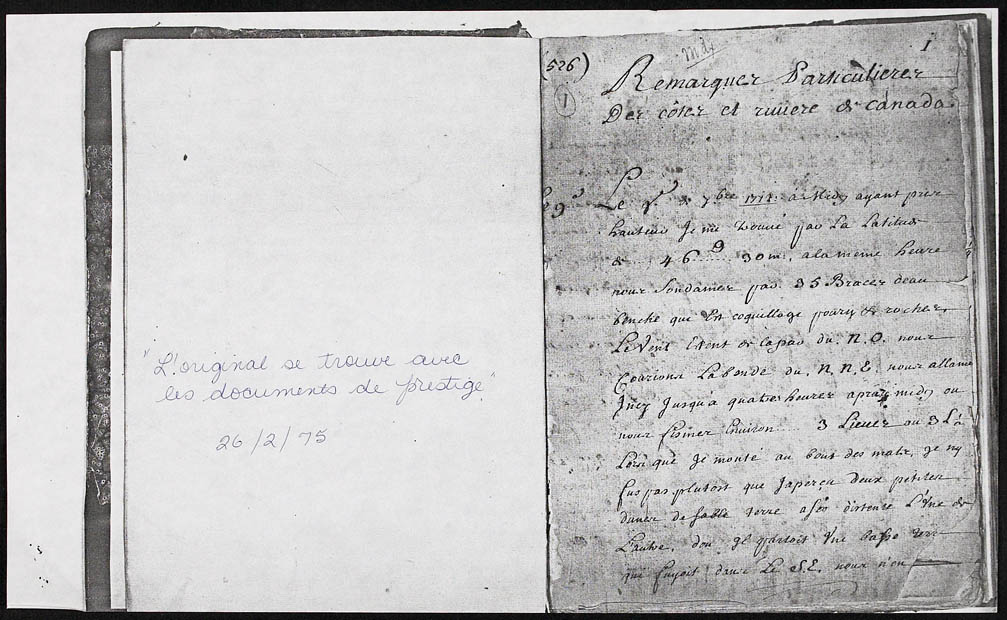 "L'original se trouve avec
les documents de prestige"
26/2/75
(526)
1
1
Remarques Particulieres
Des côtes et riuiere de canada.
Le 9e de 7bre à Midy ayant pris
hauteur Je me trouué par La Latitude
de 46 D 30 m. a la meme heure
nous Sondames par 35 Brases deau
que Est coquillage poury de roches,
Le Vent Etent de la par du N.O. nous
Courions La borde du N.N.E. nous allame
Jncy Jusqu'a quatre heures apres midy ou
nous fismes Enuiron 3 Lieues ou 3 L
Lors que Je monté au bout des mats, Je ny
fus pas plutost que Japerçu deux petites
dunes de sable terre asés distence L'Vne de
L'autre, dou Jl partoit Vne basse terre
qui fuyoit dans Le S.E. nous n'en